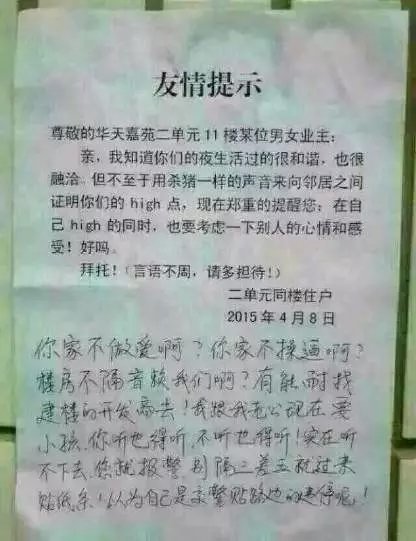 友情提示
尊敬的华天嘉苑二单元11楼某位男女业主：
亲，我知道你们的夜生活过的很和谐，也很
融洽。但不至于用杀猪一样的声音来向邻居之间
证明你们的high点，现在郑重的提醒您：在自
己high的同时，也要考虑一下别人的心情和感
受！好吗。
拜托！（言语不周，请多担待！）
二单元同楼住户
2015年4月8日
你家不做爱啊？你家不操逼啊？
楼房不隔音赖我们啊？有能耐找
建楼的开发商去！我跟我老公现在要
小孩，你听也得听，不听也得听！实在听
不下去，您就报警别隔三差五就过来
贴纸条！以为自己是交警贴路边的违停呢！